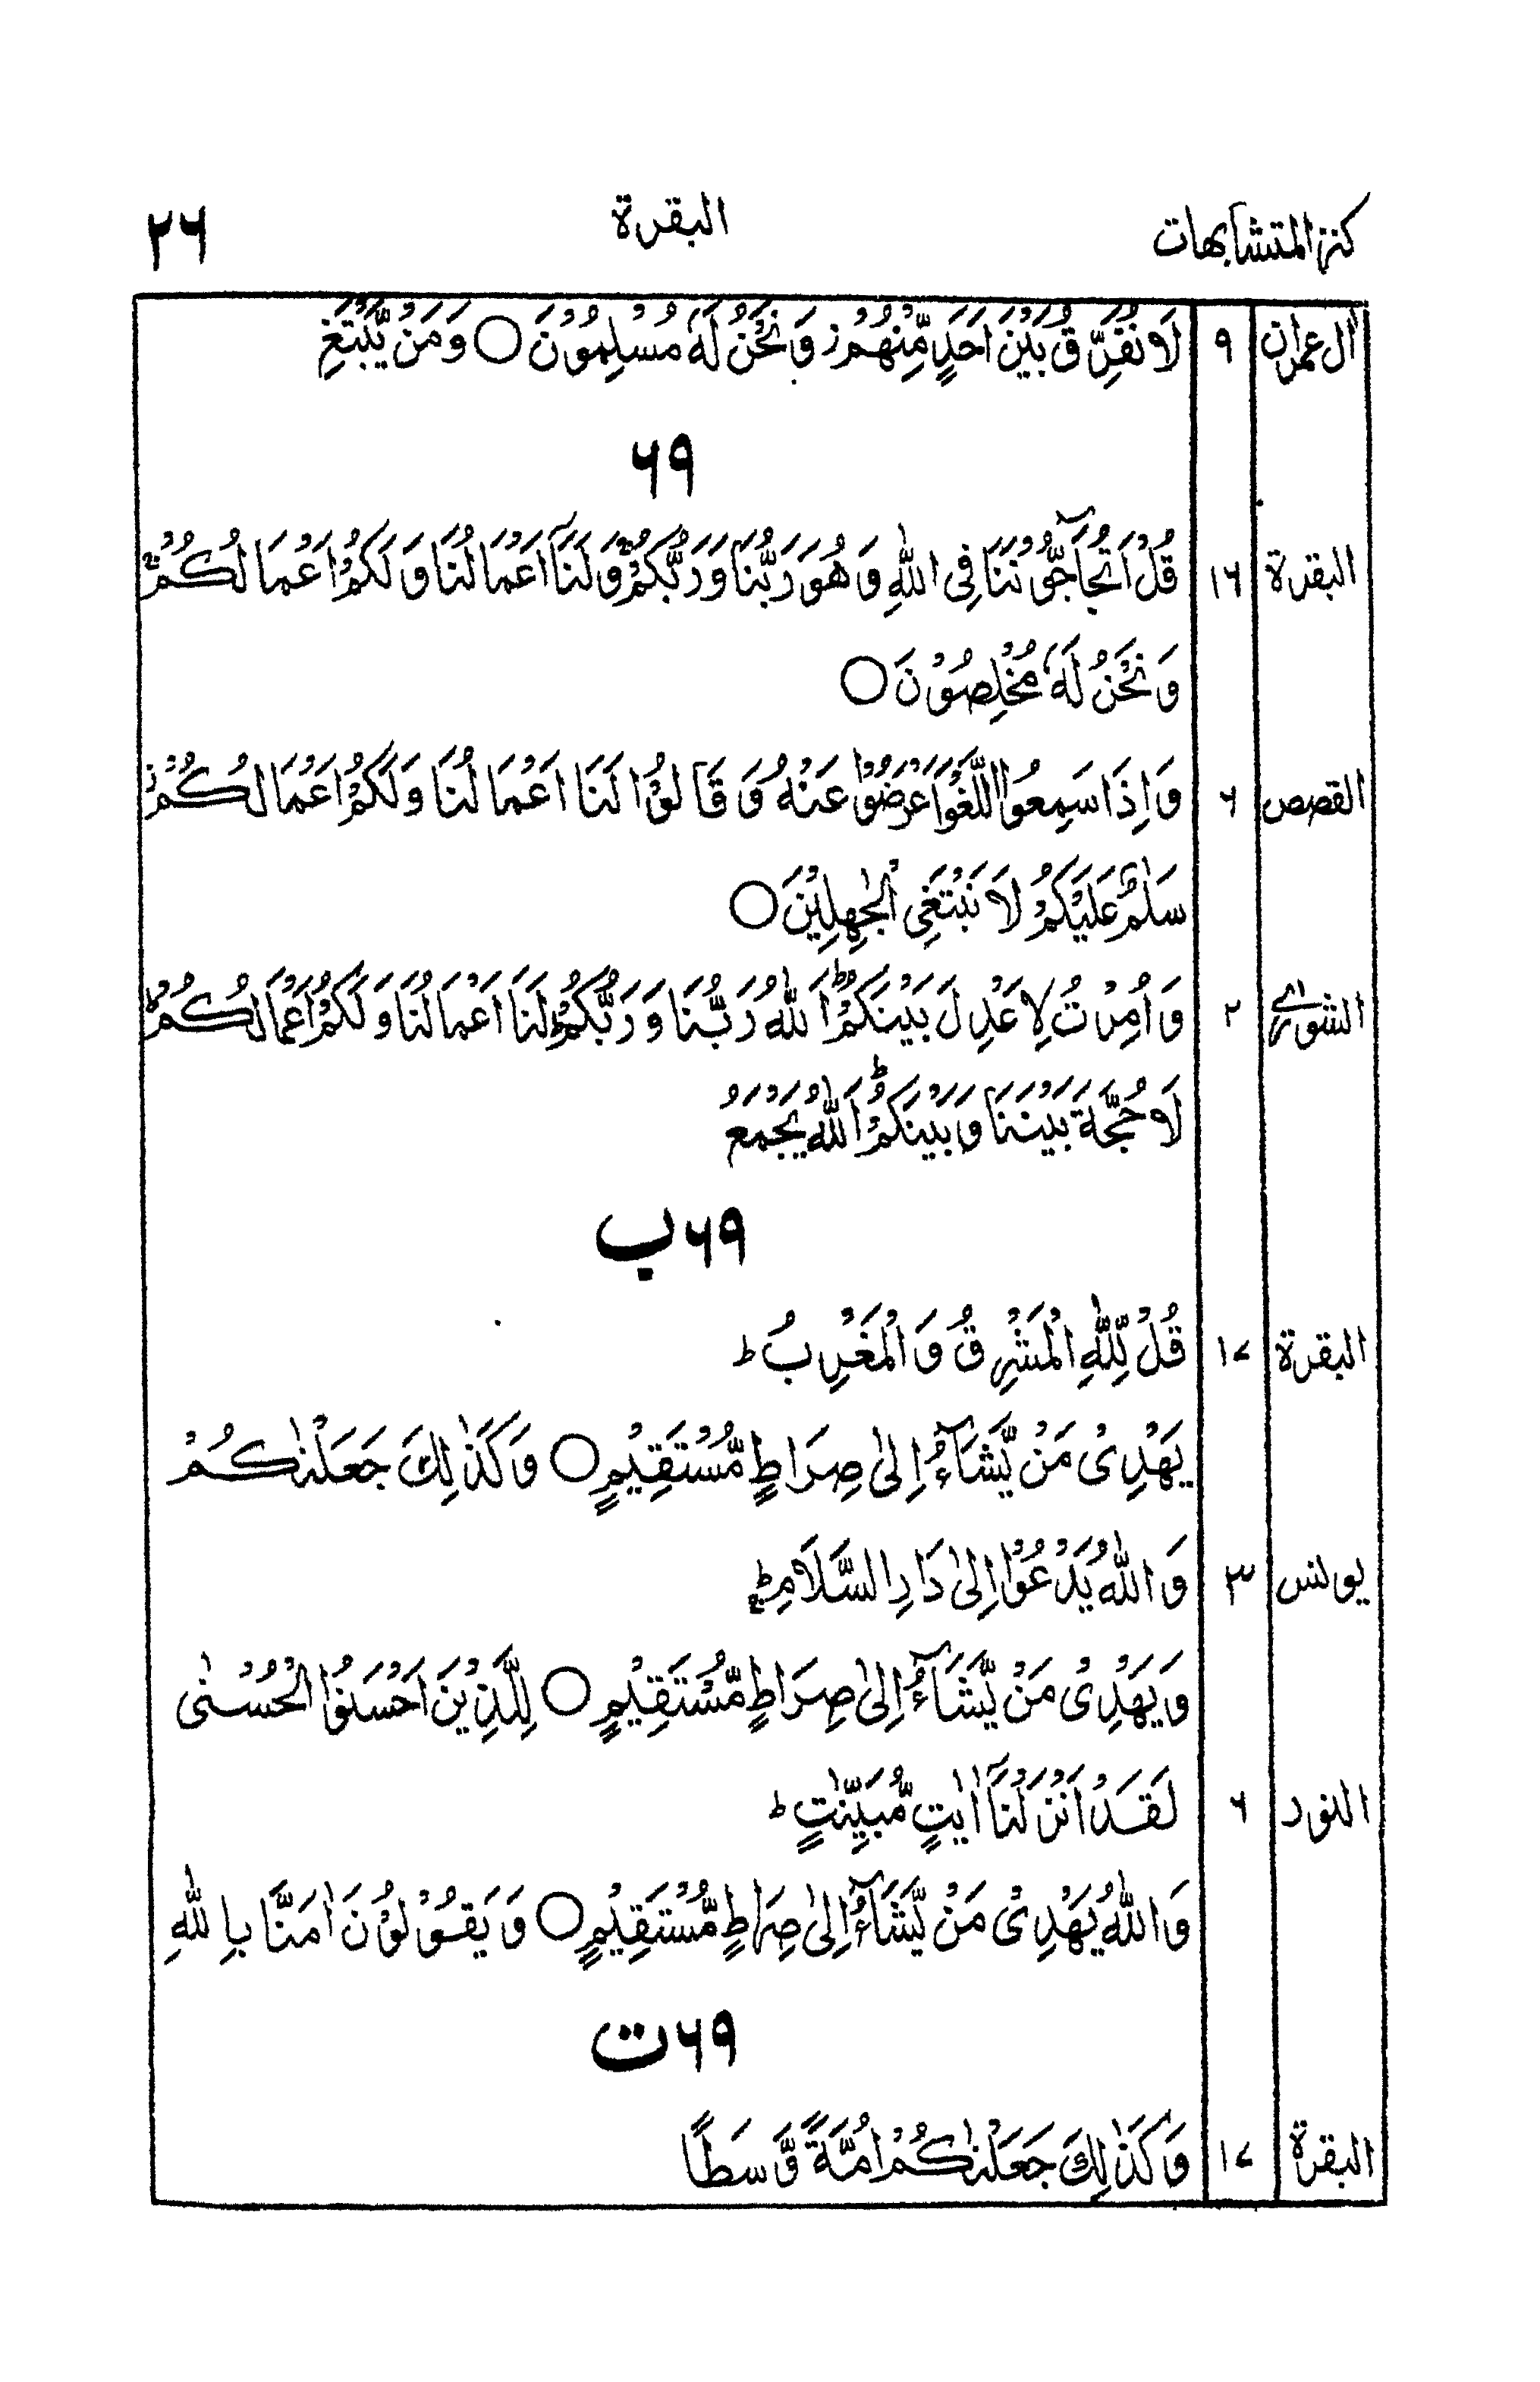 كنز المتشابهات البقرة ٢٦
اٰل عمران ٩ لَا نُفَرِّقُ بَيْنَ اَحَدٍ مِّنْهُمْ ز وَنَحْنُ لَهٗ مُسْلِمُوْنَ ○ وَمَنْ يَّبْتَغِ
٦٩
البقرة ١٦ قُلْ اَتُحَآجُّوْنَنَا فِى اللّٰهِ وَهُوَ رَبُّنَا وَرَبُّكُمْ ج وَلَنَآ اَعْمَالُنَا وَلَكُمْ اَعْمَالُكُمْ ج
وَنَحْنُ لَهٗ مُخْلِصُوْنَ ○
القصص ٦ وَاِذَا سَمِعُوا اللَّغْوَ اَعْرَضُوْا عَنْهُ وَقَالُوْا لَنَا اَعْمَالُنَا وَلَكُمْ اَعْمَالُكُمْ ز
سَلٰمٌ عَلَيْكُمْ لَا نَبْتَغِى الْجٰهِلِيْنَ ○
الشورٰى ٢ وَاُمِرْتُ لِاَعْدِلَ بَيْنَكُمْ ط اَللّٰهُ رَبُّنَا وَرَبُّكُمْ ط لَنَا اَعْمَالُنَا وَلَكُمْ اَعْمَالُكُمْ ط
لَا حُجَّةَ بَيْنَنَا وَبَيْنَكُمْ ط اَللّٰهُ يَجْمَعُ
٦٩ ب
البقرة ١٧ قُلْ لِّلّٰهِ الْمَشْرِقُ وَالْمَغْرِبُ ط
يَهْدِىْ مَنْ يَّشَآءُ اِلٰى صِرَاطٍ مُّسْتَقِيْمٍ ○ وَكَذٰلِكَ جَعَلْنٰكُمْ
يونس ٣ وَاللّٰهُ يَدْعُوْا اِلٰى دَارِ السَّلَامِ ط
وَيَهْدِىْ مَنْ يَّشَآءُ اِلٰى صِرَاطٍ مُّسْتَقِيْمٍ ○ لِلَّذِيْنَ اَحْسَنُوا الْحُسْنٰى
النور ٦ لَقَدْ اَنْزَلْنَآ اٰيٰتٍ مُّبَيِّنٰتٍ ط
وَاللّٰهُ يَهْدِىْ مَنْ يَّشَآءُ اِلٰى صِرَاطٍ مُّسْتَقِيْمٍ ○ وَيَقُوْلُوْنَ اٰمَنَّا بِاللّٰهِ
٦٩ ت
البقرة ١٧ وَكَذٰلِكَ جَعَلْنٰكُمْ اُمَّةً وَّسَطًا